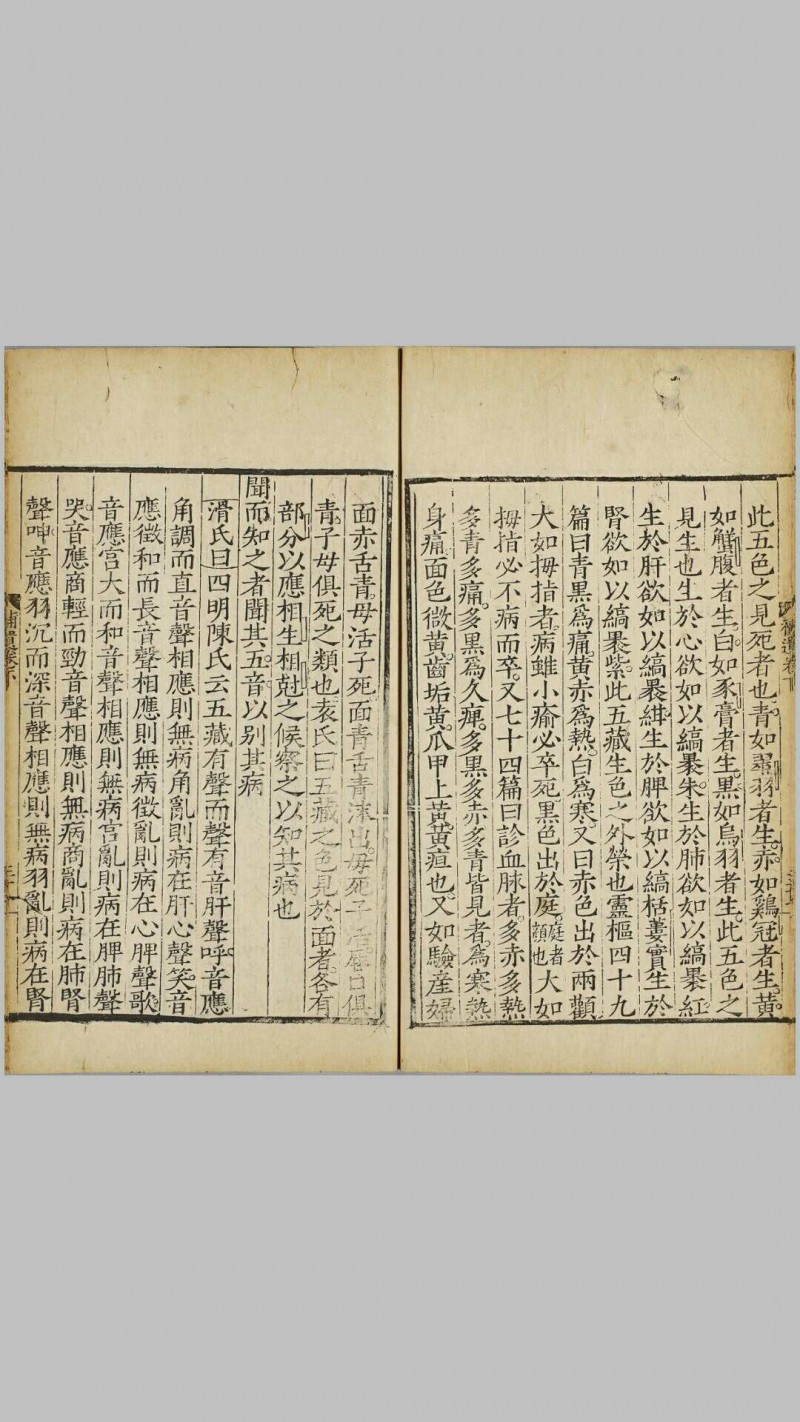 此五色之見死者也青如翠羽者生赤如鷄冠者生黃
如蟹腹者生白如豕膏者生黑如烏羽者生此五色之
見生也生於心欲如以縞褁朱生於肺欲如以縞褁紅
生於肝欲如以縞褁紺生於脾欲如以縞栝蔞實生於
腎欲如以縞褁紫此五藏生色之外榮也靈樞四十九
篇曰青黑爲痛黃赤爲熱白爲寒又曰赤色出於兩顴
大如拇指者病雖小瘉必卒死黑色出於庭庭者顔也大如
拇指必不病而卒又七十四篇曰診血脉者多赤多熱
多青多痛多黑爲久痺多黑多赤多青皆見者爲寒熱
身痛面色微黃齒垢黃爪甲上黃黃疸也又如驗產婦
面赤舌青母活子死面青舌青沫出母死子活唇口俱
青子母俱死之類也袁氏曰五藏之色見於面者各有
部分以應相生相尅之候察之以知其病也
聞而知之者聞其五音以別其病
滑氏曰四明陳氏云五藏有聲而聲有音肝聲呼音應
角調而直音聲相應則無病角亂則病在肝心聲笑音
應徵和而長音聲相應則無病徵亂則病在心脾聲歌
音應宮大而和音聲相應則無病宮亂則病在脾肺聲
哭音應商輕而勁音聲相應則無病商亂則病在肺腎
聲呻音應羽沉而深音聲相應則無病羽亂則病在腎